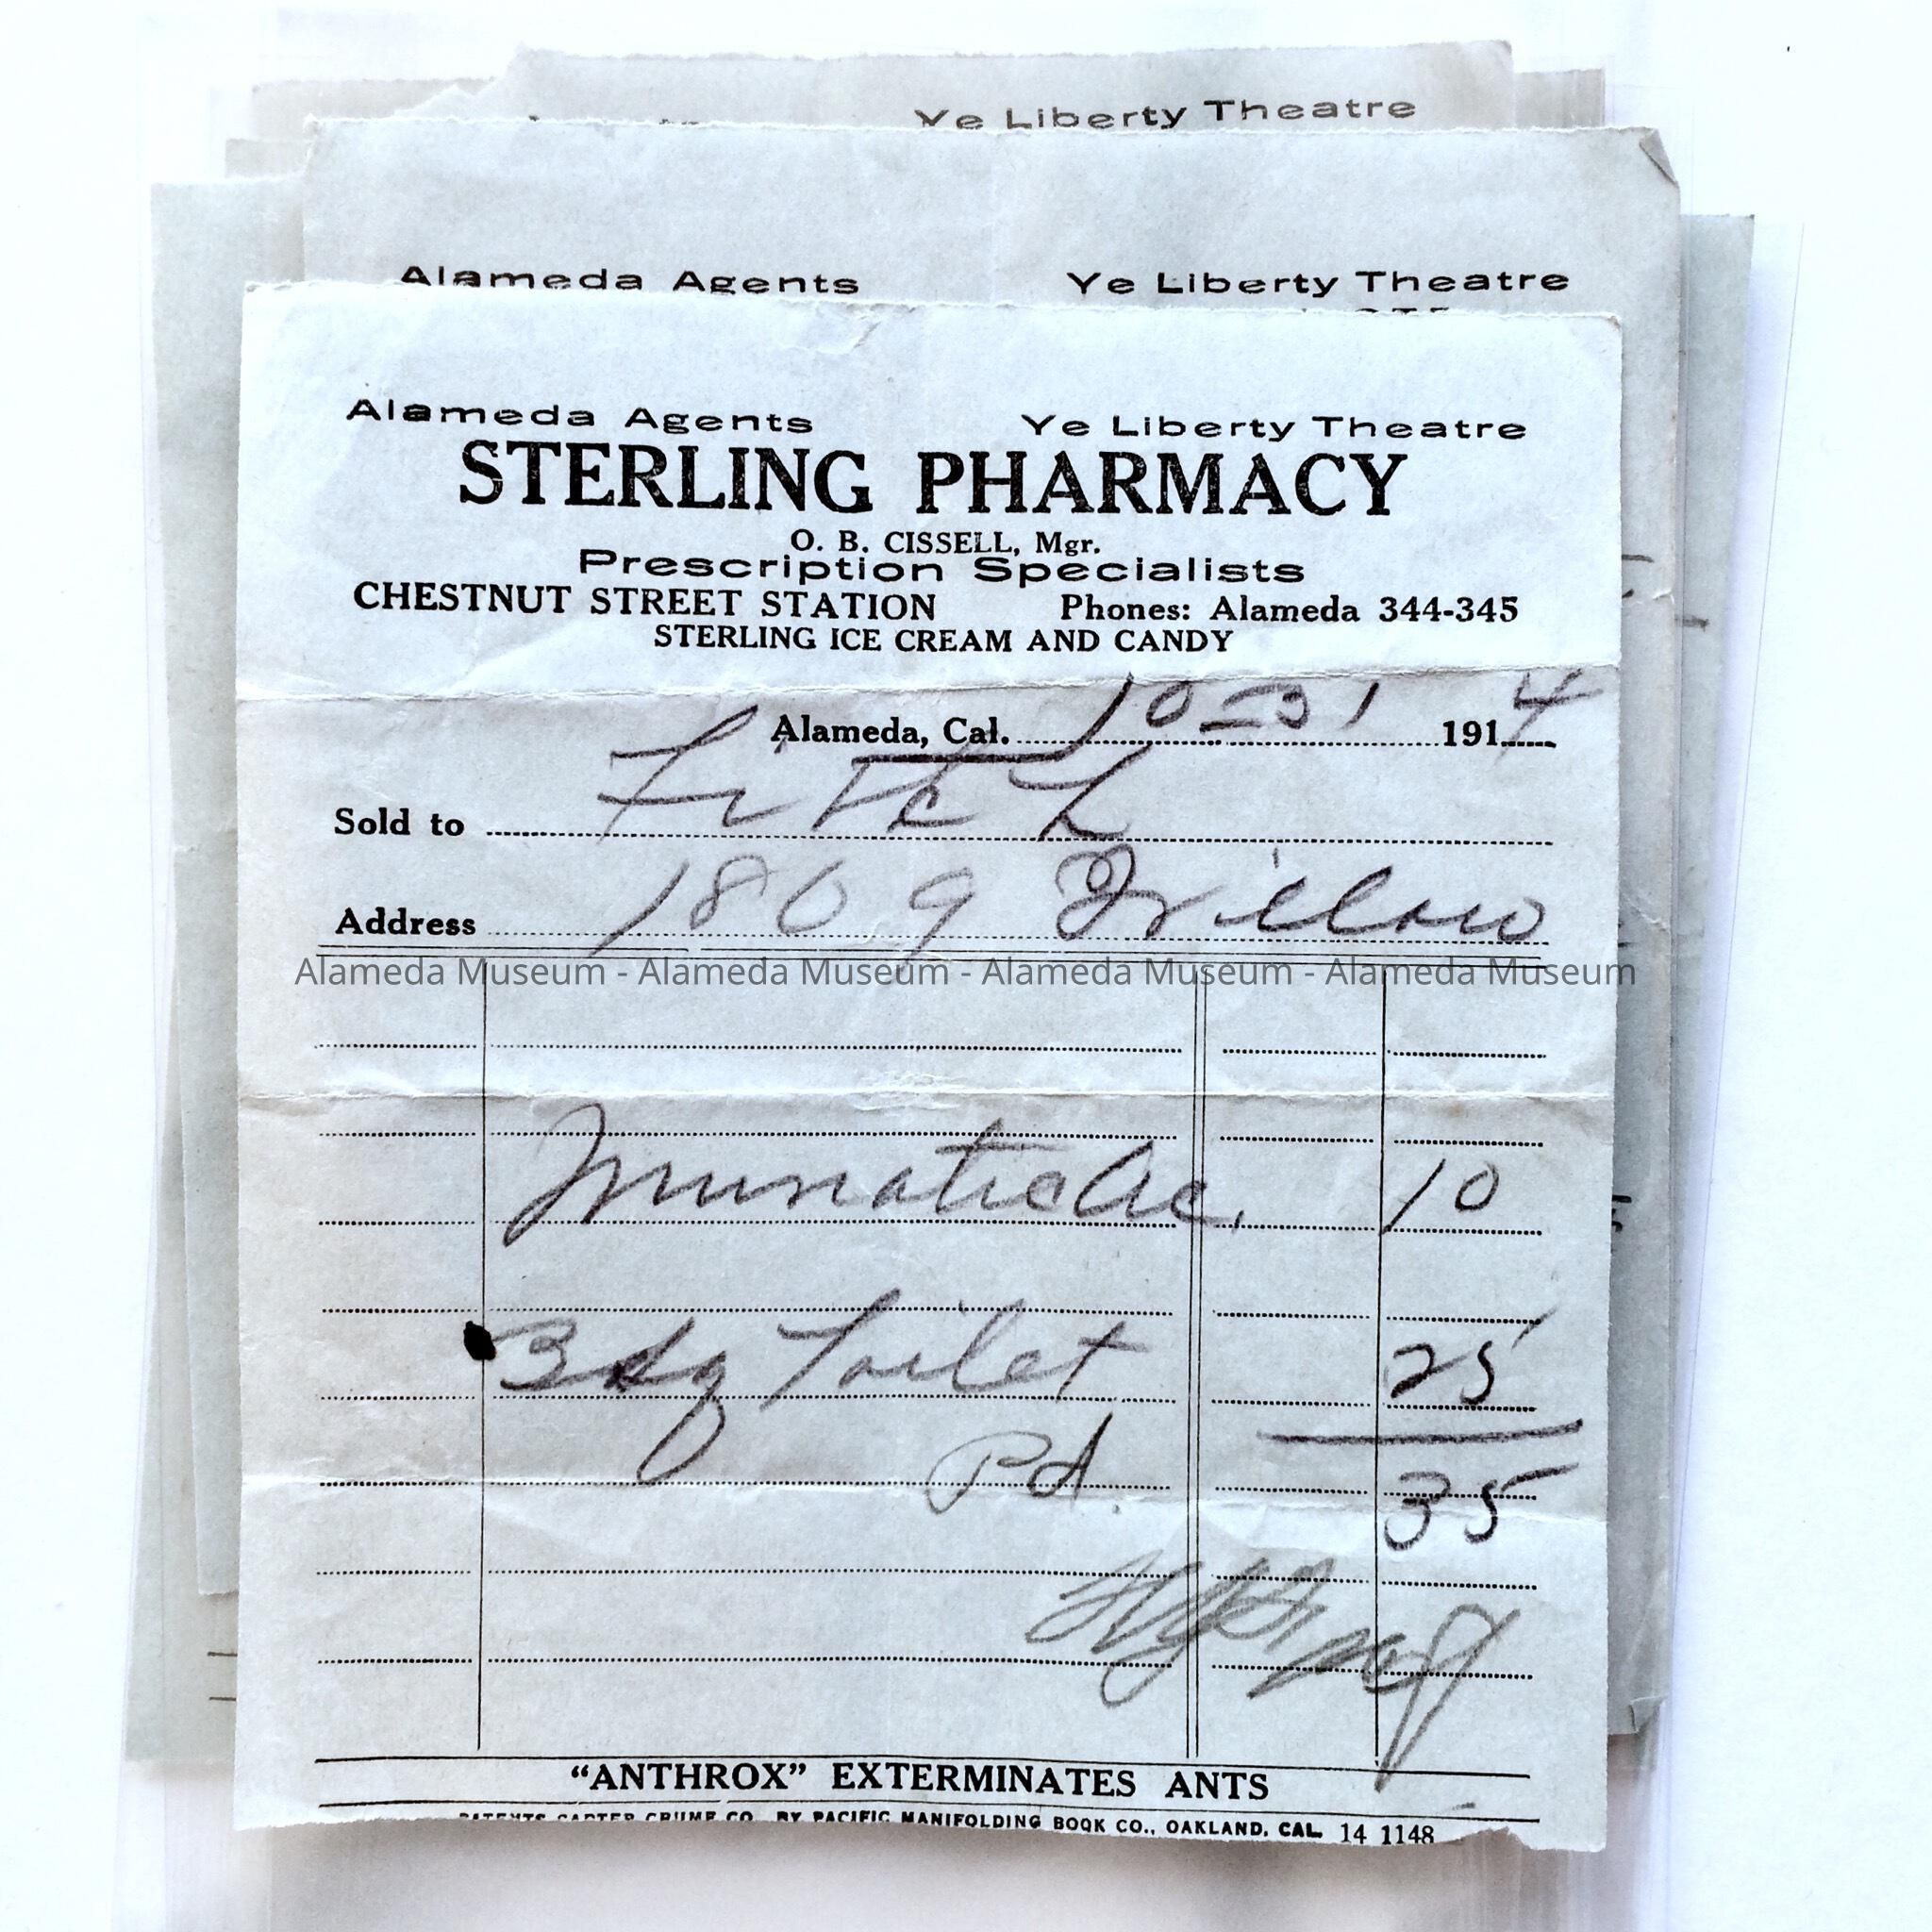 Ye Liberty Theatre
Alameda Agents Ye Liberty Theatre
Alameda Agents Ye Liberty Theatre
STERLING PHARMACY
O. B. CISSELL, Mgr.
Prescription Specialists
CHESTNUT STREET STATION Phones: Alameda 344-345
STERLING ICE CREAM AND CANDY
Alameda, Cal. 10-31 1914
Sold to
Address 1809 Willow
Alameda Museum - Alameda Museum - Alameda Museum - Alameda Museum
Muriatic Ac. 10
3 Toilet 25
Pd. 35
“ANTHROX” EXTERMINATES ANTS
PATENTS CARTER CRUME CO. BY PACIFIC MANIFOLDING BOOK CO., OAKLAND, CAL. 14 1148